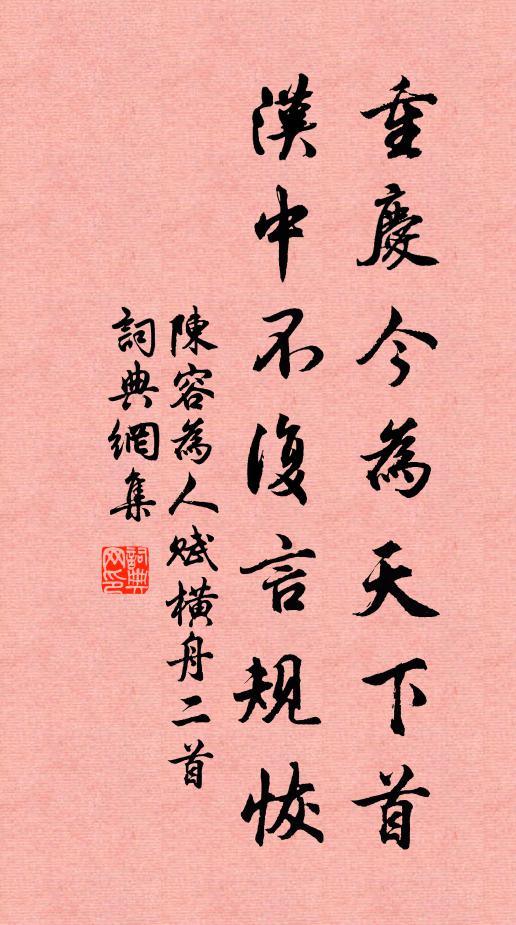 重慶今為天下首
漢中不復言規恢
陳容為人賦橫舟二首
詞典網集
詞典网印